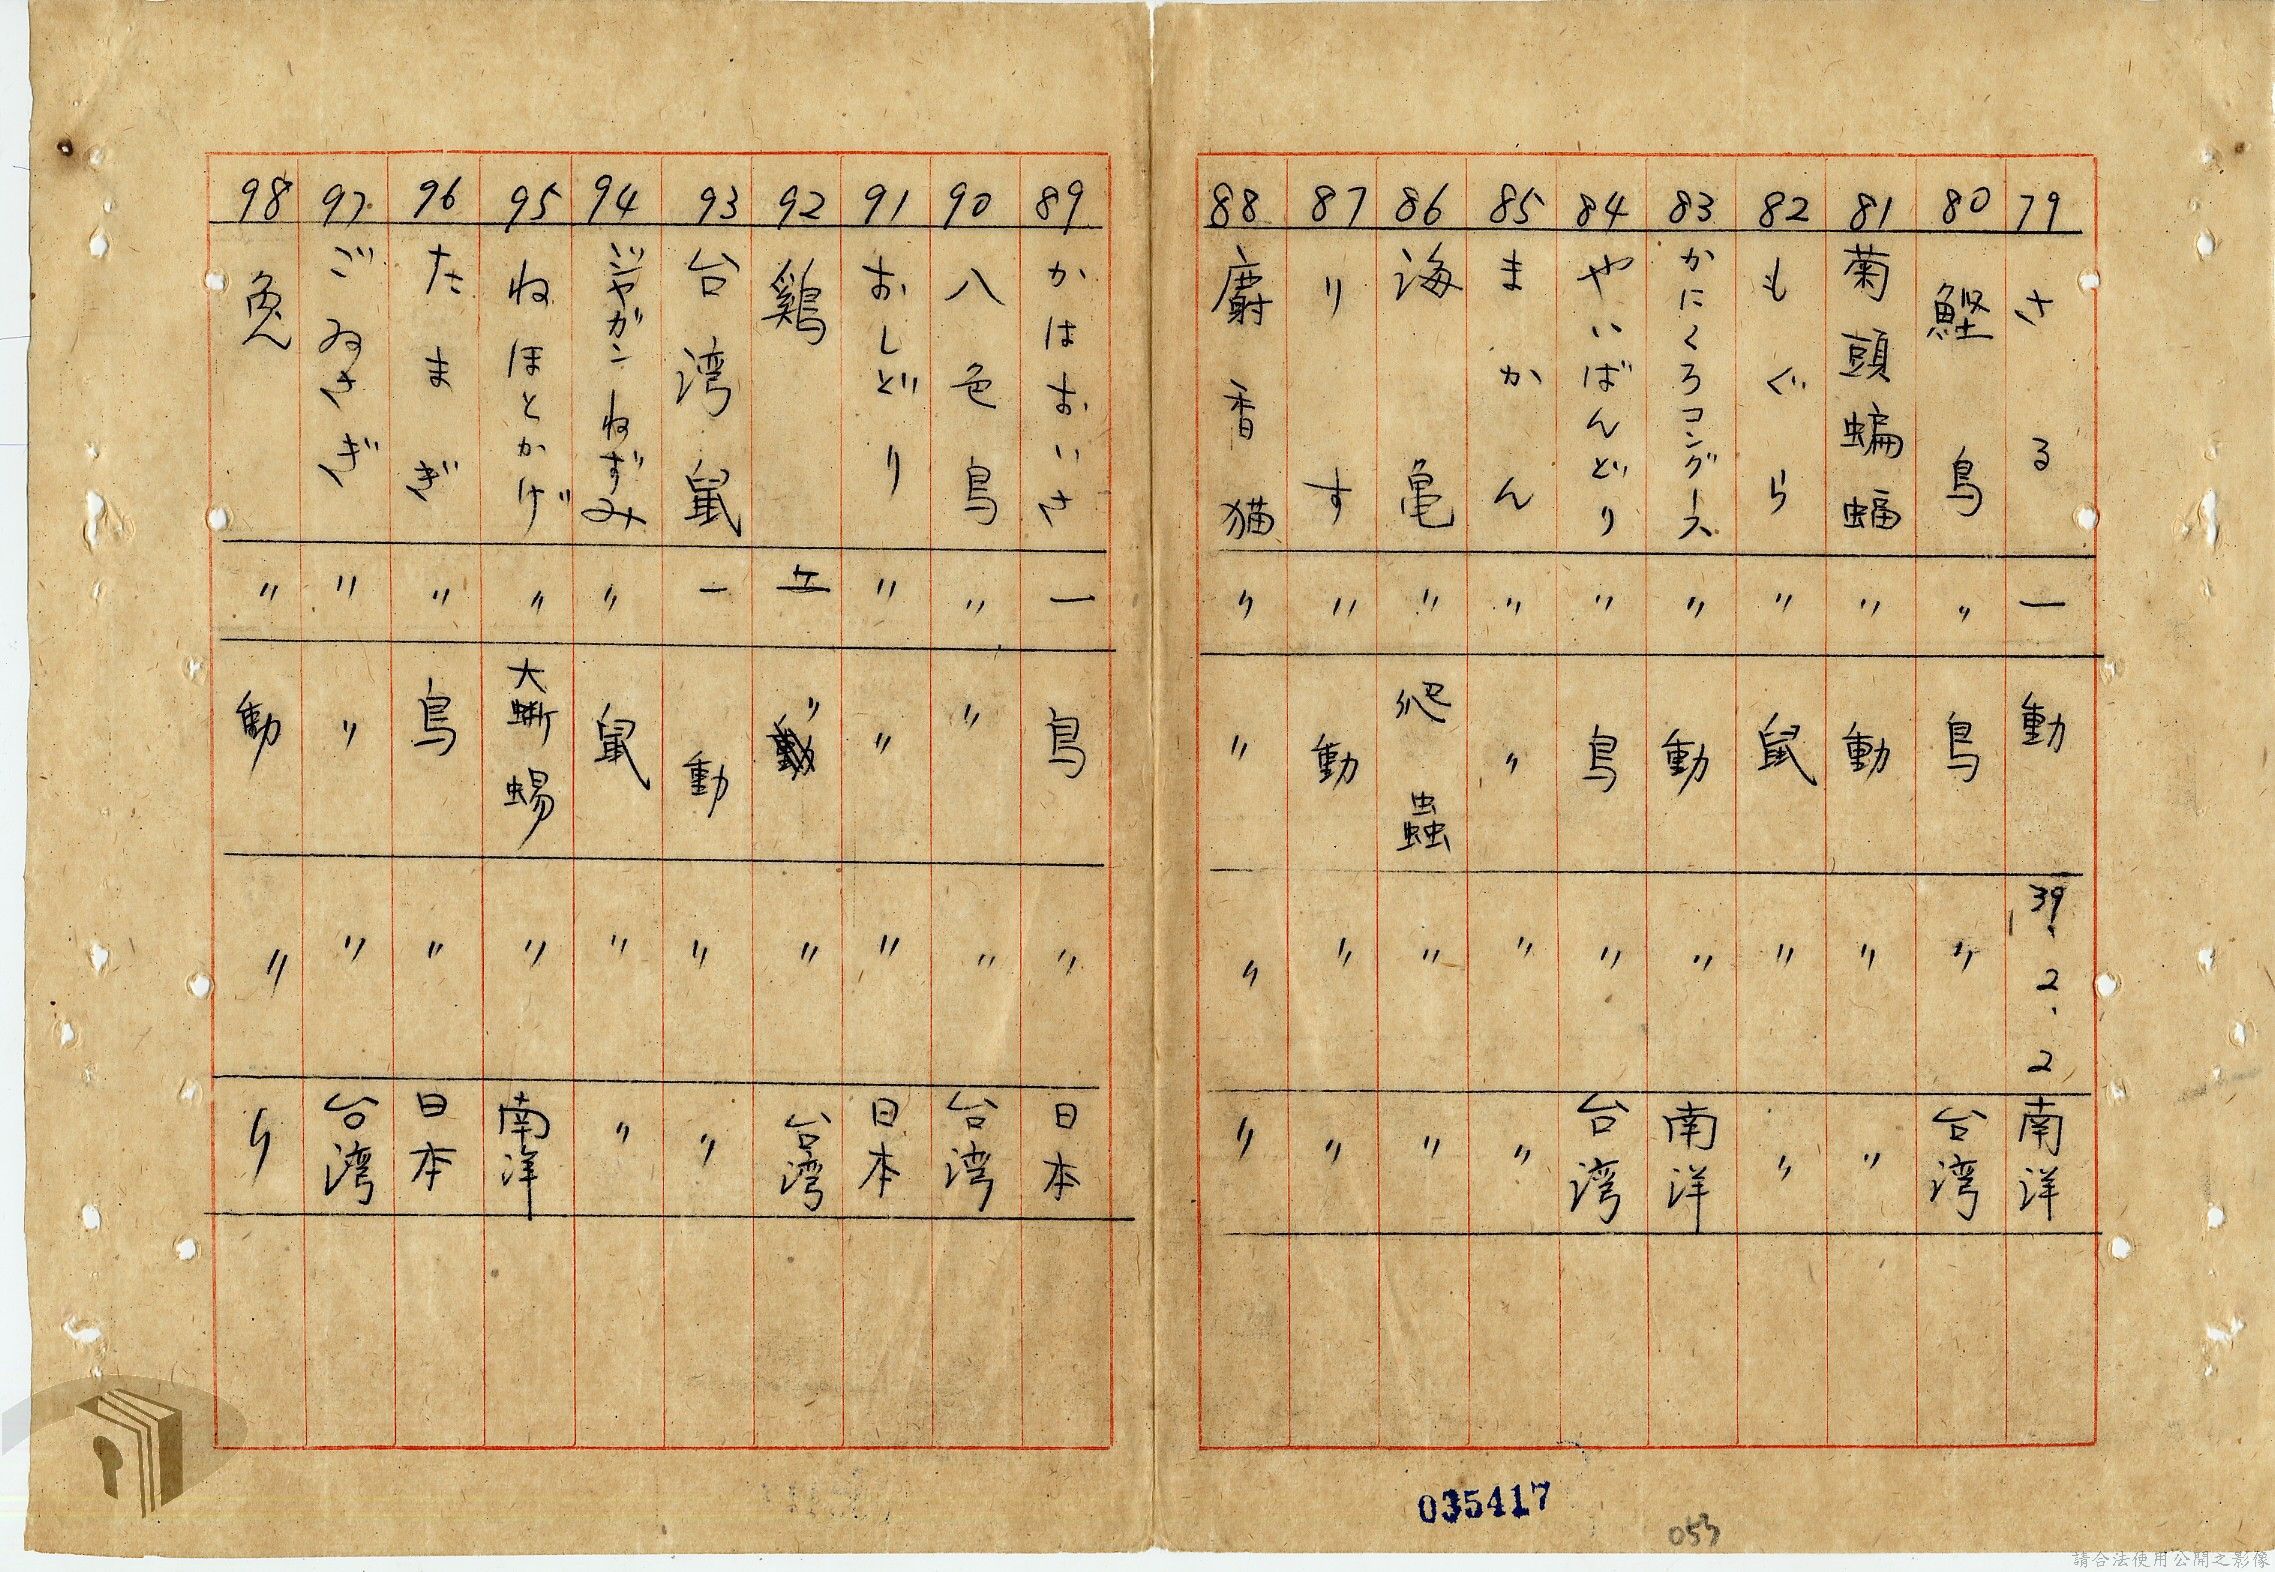 79 さる 一 動 39.2.2 南洋
80 鰹鳥 〃 鳥 〃 台湾
81 菊頭蝙蝠 〃 動 〃 〃
82 もぐら 〃 鼠 〃 〃
83 かにくろコングース 〃 動 〃 南洋
84 やいばんどり 〃 鳥 〃 台湾
85 まかん 〃 〃 〃 〃
86 海亀 〃 爬蟲 〃 〃
87 りす 〃 動 〃 〃
88 麝香猫 〃 〃 〃 〃
89 かはおいさ 一 鳥 〃 日本
90 八色鳥 〃 〃 〃 台湾
91 おしどり 〃 〃 〃 日本
92 鷄 〃 〃 台湾
93 台湾鼠 一 動 〃 〃
94 じやがンねずみ 〃 鼠 〃 〃
95 ねほとかげ 〃 大蜥蜴 〃 南洋
96 たまぎ 〃 鳥 〃 日本
97 ごゐさぎ 〃 〃 〃 台湾
98 兔 〃 動 〃 〃
035417
053
請合法使用公開之影像